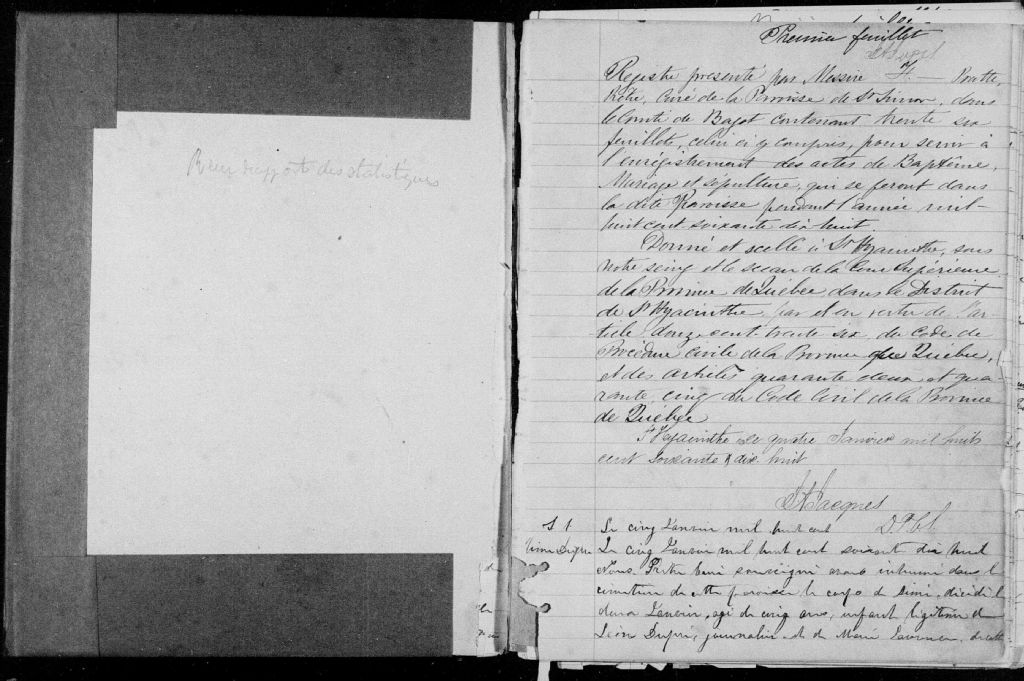 rapport des statistiques
Premier feuillet
Registre presenté par Messire
Prêtre, Curé de la Paroisse de St Simon, dans
le Comté de Bagot contenant trente six
feuillets, celui ci y compris, pour servir à
l'enrégistrement des actes de Baptême,
Mariage et sépulture, qui se feront dans
la dite Paroisse pendant l'année mil-
huit cent soixante dix huit.
Donné et scellé à St Hyacinthe, sous
notre seing et le sceau de la Cour Supérieure
de la Province de Québec, dans le District
de St Hyacinthe par et en vertu de l'ar-
ticle douze cent trente six du Code de
Procédure civile de la Province que Québec,
et des articles quarante deux et qua-
rante cinq du Code Civil de la Province
de Québec
St Hyacinthe ce quatre Janvier mil huit
cent soixante & dix huit
S 1
Le cinq Janvier mil huit cent
Le cinq Janvier mil huit cent soixante dix huit
Nous Prêtre Curé soussigné avons inhumé dans le
cimetière de cette paroisse le corps de décédé le
deux Janvier, agé de cinq ans, enfant légitime de
Léon Dupré, journalier et de Marie de cette